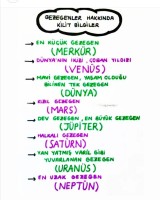 GEZEGENLER HAKKINDA
KİLİT BİLGİLER
→ EN KÜÇÜK GEZEGEN
(MERKÜR)
→ DÜNYA'NIN İKİZİ, ÇOBAN YILDIZI
(VENÜS)
→ MAVİ GEZEGEN, YAŞAM OLDUĞU
BİLİNEN TEK GEZEGEN
(DÜNYA)
→ KIZIL GEZEGEN
(MARS)
→ DEV GEZEGEN, EN BÜYÜK GEZEGEN
(JÜPİTER)
→ HALKALI GEZEGEN
(SATÜRN)
→ YAN YATMIŞ VARİL GİBİ
YUVARLANAN GEZEGEN
(URANÜS)
→ EN UZAK GEZEGEN
(NEPTÜN)